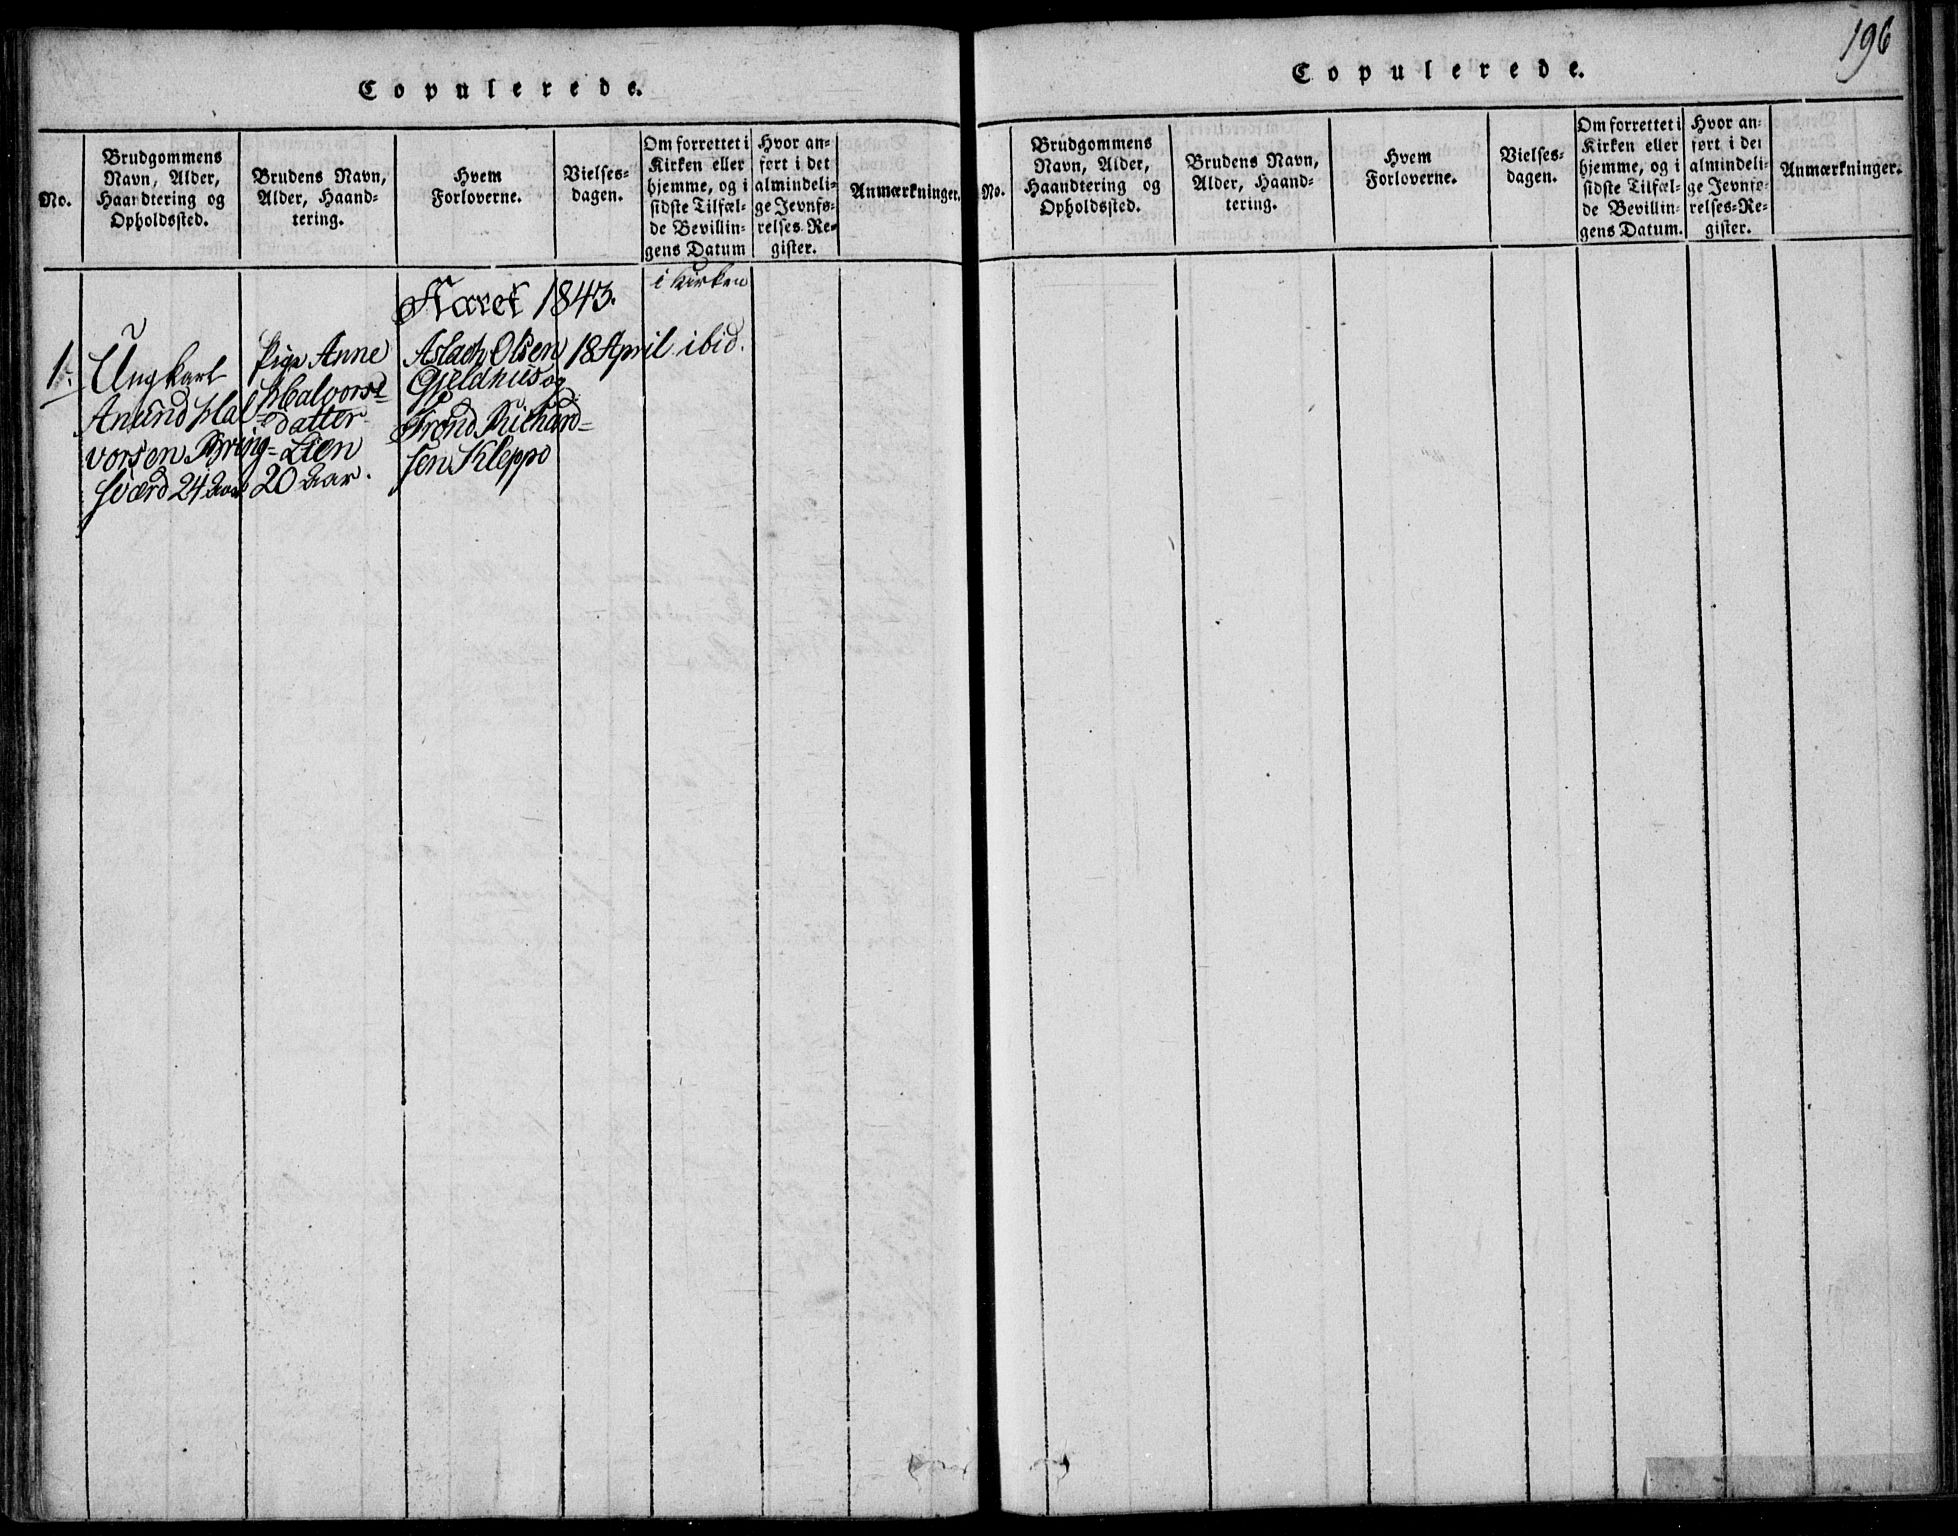 Copulerede.
No.
Brudgommens
Navn, Alder,
Haandtering og
Opholdssted.
Brudens Navn,
Alder, Haand-
tering.
Hvem
Forloverne.
Vielses-
dagen.
Om forrettet i
Kirken eller
hjemme, og i
sidste Tilfæl-
de Bevillin-
gens Datum
Hvor an-
ført i det
almindeli-
ge Jevnfø-
relses-Re-
gister.
Anmærkninger.
Aaret 1843.
i Kirken
1.
Ungkarl
Anund Hal-
vorsen Bring-
sværd 24 Aar
Pige Anne
Halvors-
datter
Lien
20 Aar.
Aslach Olsen
Gjeldhus og
Trond Richard-
sen Kleppo
18 April
ibid.
196
Copulerede.
No.
Brudgommens
Navn, Alder,
Haandtering og
Opholdssted.
Brudens Navn,
Alder, Haand-
tering.
Hvem
Forloverne.
Vielses-
dagen.
Om forrettet i
Kirken eller
hjemme, og i
sidste Tilfæl-
de Bevillin-
gens Datum.
Hvor an-
ført i det
almindeli-
ge Jevnfø-
relses-Re-
gister.
Anmærkninger.